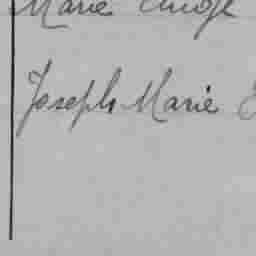 Marie
Joseph Marie